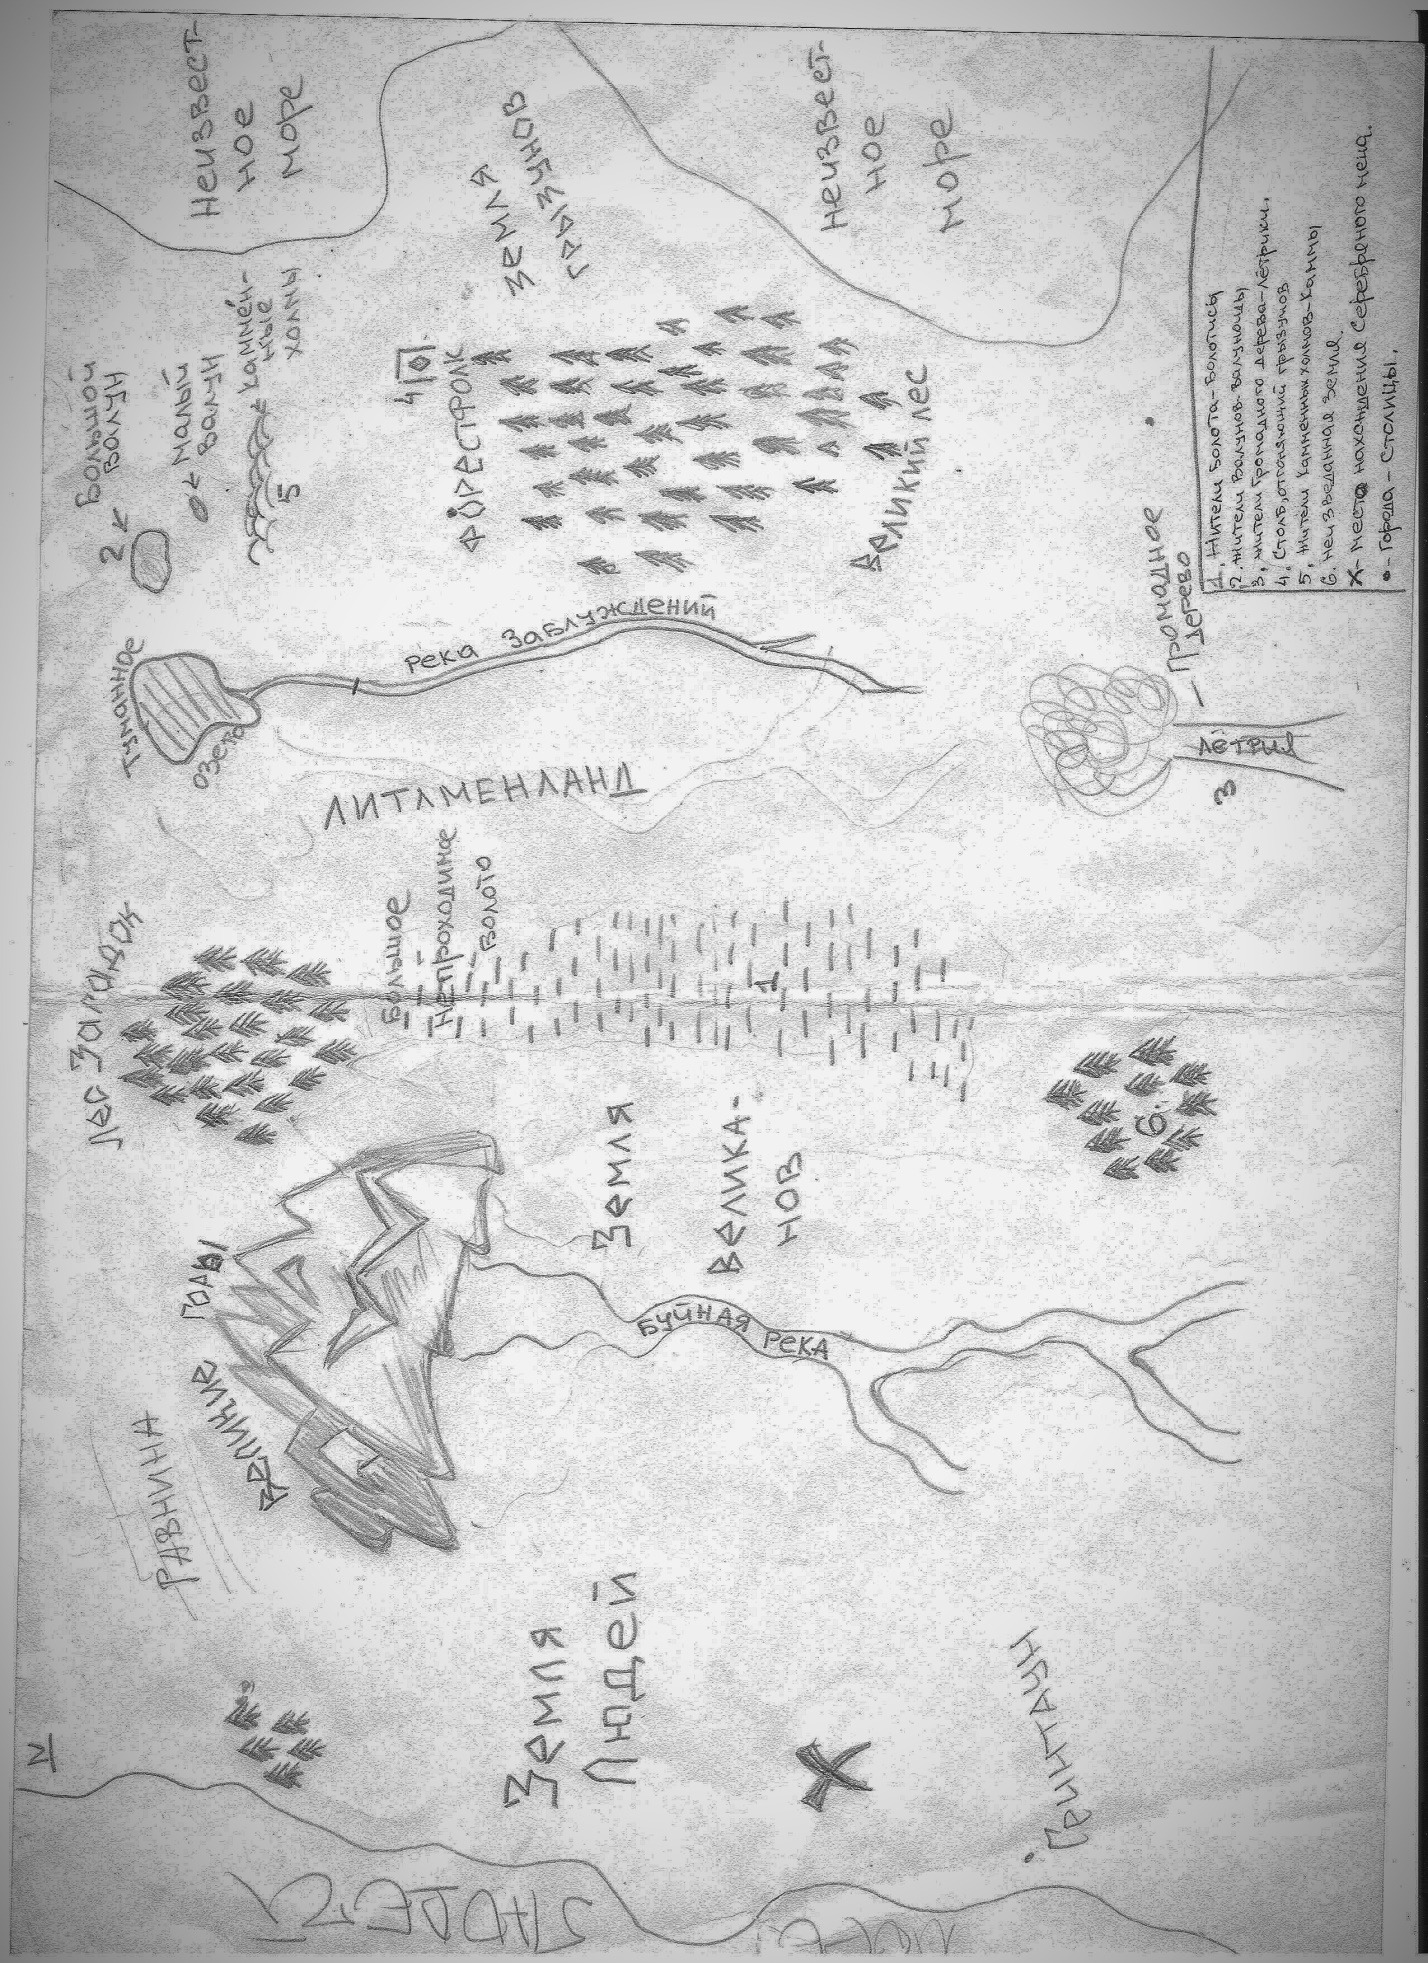 Неизвест-
ное
море
Земля
грызунов
Неизвест-
ное
море
Большой
валун
2
Малый
валун
каммен-
ные
холмы
5
4
Фрестролк
Великий лес
Туманное
озеро
река Заблуждений
Громадное
дерево
Лётрил
3
ЛИТЛМЕНЛАНД
Лес Загадок
Большое
Непроходимое
Болото
1
6.
Земля
Велика-
нов
Великие
Горы
Буйная река
Равнина
Земля
Людей
Х
Гринтаун
1. Жители Болота-Болотисы
2. Жители Валунов-Валуноиды
3. Жители Громадного дерева-Лётрики.
4. Столб, отгоняющий грызунов
5. Жители Камменных холмов-Каммы
6. Неизведанная Земля.
Х- Место нахождения Серебреного меча.
•- Города - Столицы.